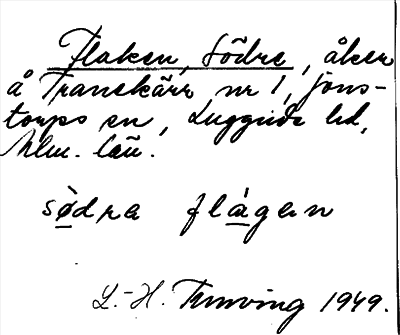 Flaken, Södre, åker
å Tranekärr nr 1, Jons-
torps sn, Luggude hd,
Mlm. län.
södra flågen
L.-H. Tunving 1949.